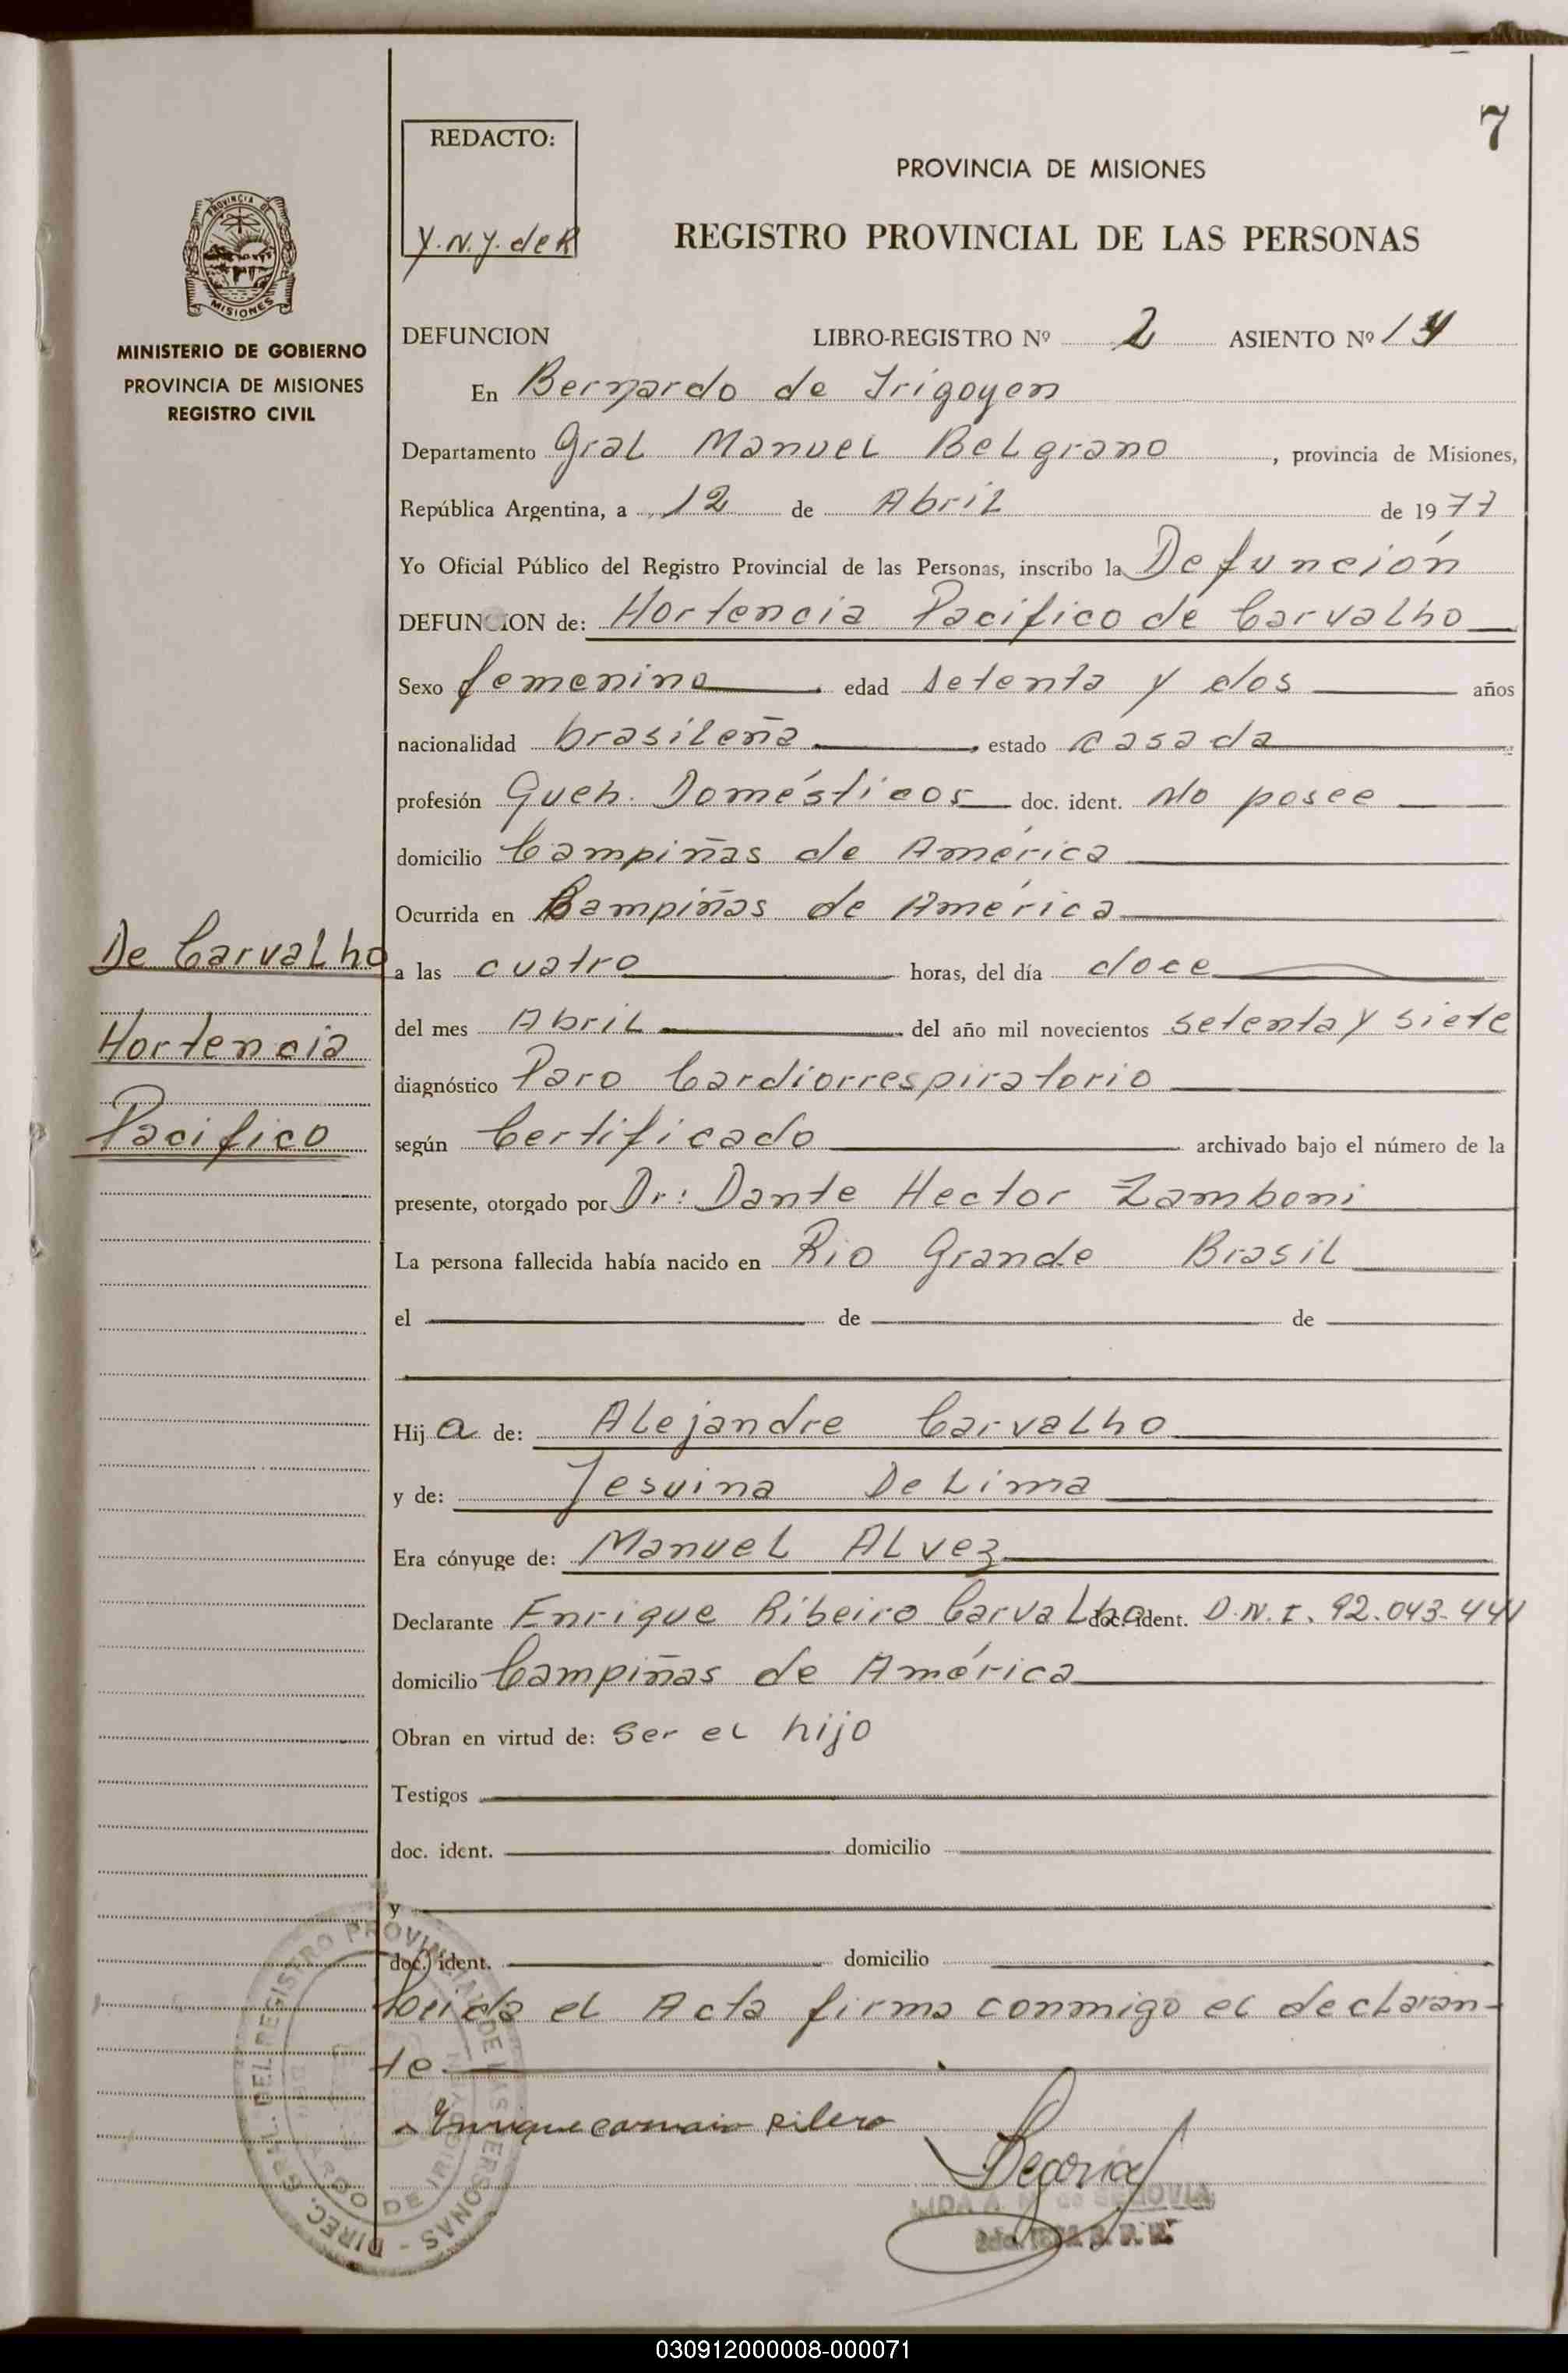 7
REDACTO:
Y.N.Y. de R
PROVINCIA DE MISIONES
REGISTRO PROVINCIAL DE LAS PERSONAS
PROVINCIA DE
MISIONES
MINISTERIO DE GOBIERNO
PROVINCIA DE MISIONES
REGISTRO CIVIL
DEFUNCION LIBRO-REGISTRO Nº 2 ASIENTO Nº 14
En Bernardo de Irigoyen
Departamento Gral Manuel Belgrano, provincia de Misiones,
República Argentina, a 12 de Abril de 1977
Yo Oficial Público del Registro Provincial de las Personas, inscribo la Defunción
DEFUNCION de: Hortencia Pacifico de Carvalho
Sexo femenino edad setenta y dos años
nacionalidad brasileña, estado casada
profesión Queh. Domésticos doc. ident. No posee
domicilio Campiñas de América
Ocurrida en Campiñas de América
De Carvalho
Hortencia
Pacifico
a las cuatro horas, del día doce
del mes Abril del año mil novecientos setenta y siete
diagnóstico Paro Cardiorrespiratorio
según Certificado archivado bajo el número de la
presente, otorgado por Dr: Dante Hector Zamboni
La persona fallecida había nacido en Rio Grande Brasil
el de de
Hija de: Alejandre Carvalho
y de: Jesuina De Lima
Era cónyuge de: Manuel Alvez
Declarante Enrique Ribeiro Carvalho doc. ident. D.N.I. 92.043.441
domicilio Campiñas de América
Obran en virtud de: ser el hijo
Testigos
doc. ident. domicilio
y
doc. ident. domicilio
Leida el Acta firma conmigo el declaran-
te
Enrique
Segovia
LIDA A. M. de SEGOVIA
DIREC. GRAL. DEL REGISTRO PROVINCIAL DE LAS PERSONAS -
BERNARDO DE IRIGOYEN
030912000008-000071